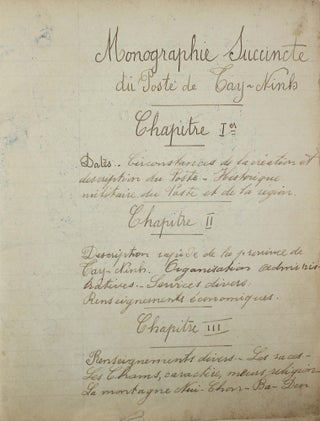 Monographie Succincte
du Poste de Tay-Ninh
Chapitre Ier
Dates.. Circonstances de la création et
description du Poste - Historique
militaire du Poste et de la région
Chapitre II
Description rapide de la province de
Tay-Ninh. Organisation adminis-
tratives.- Services divers.
Renseignements économiques.
Chapitre III
Renseignements divers - Les races -
Les Chams, caractère, mœurs, religion
La montagne Nui-Chon-Ba-Den